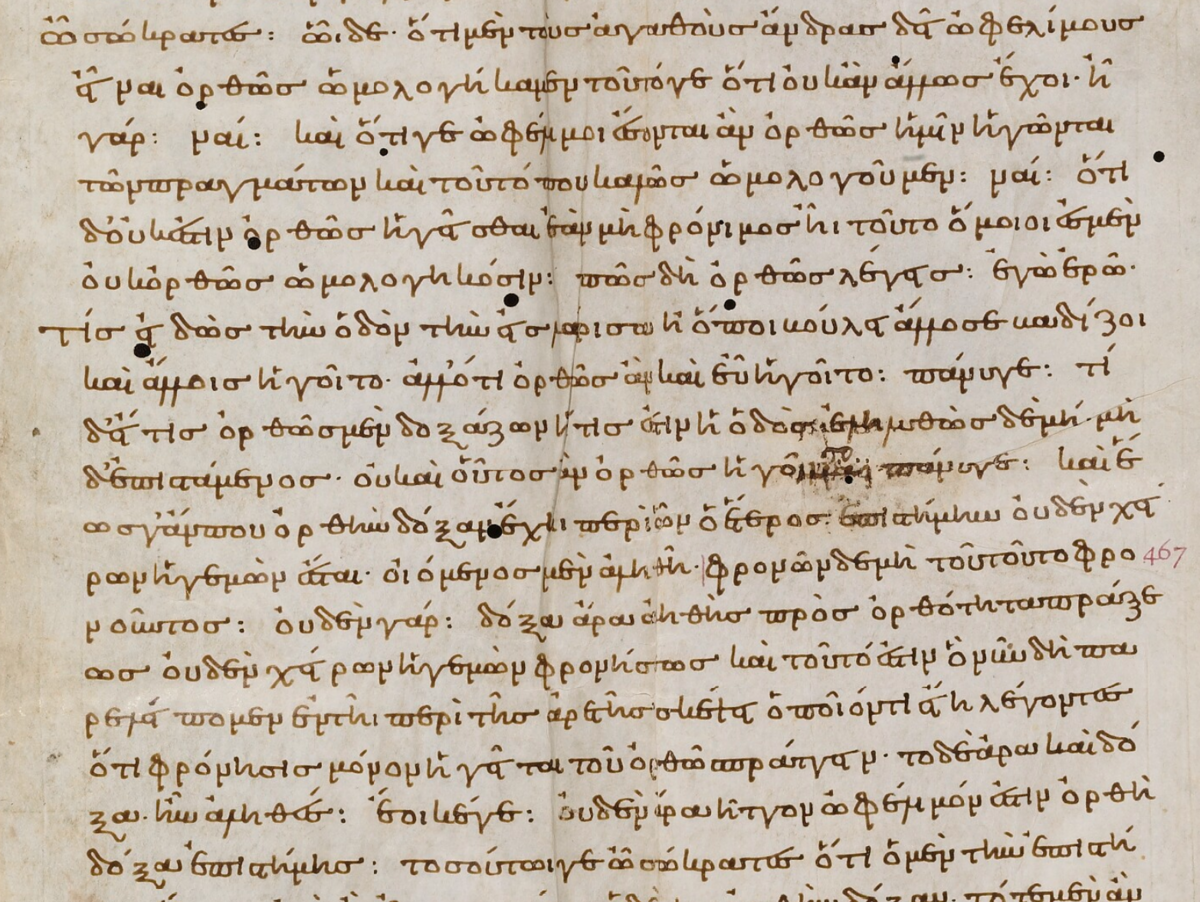 ὦ σώκρατες: ὧδε· ὅτι μὲν τοὺς ἀγαθοὺς ἄνδρας δεῖ ὠφελίμους
εἶναι ὀρθῶς ὡμολογήκαμεν τοῦτό γε ὅτι οὐκ ἂν ἄλλως ἔχοι· ἦ
γάρ: ναί: καὶ ὅτι γε ὠφέλιμοι ἔσονται ἂν ὀρθῶς ἡμῖν ἡγῶνται
τῶν πραγμάτων καὶ τοῦτό που καλῶς ὡμολογοῦμεν: ναί: ὅτι
δ' οὐκ ἔστιν ὀρθῶς ἡγεῖσθαι ἐὰν μὴ φρόνιμος ἦι τοῦτο ὅμοιοι ἐσμὲν
οὐκ ὀρθῶς ὡμολογηκόσιν: πῶς δὴ ὀρθῶς λέγεις: ἐγὼ ἐρῶ·
εἴ τις εἰδὼς τὴν ὁδὸν τὴν εἰς λάρισαν ἢ ὅποι βούλει ἄλλοσε βαδίζοι
καὶ ἄλλοις ἡγοῖτο· ἄλλό τι ὀρθῶς ἂν καὶ εὖ ἡγοῖτο: πάνυ γε: τί
δ' εἴ τις ὀρθῶς μὲν δοξάζων ἥτις ἐστὶν ἡ ὁδὸς ἐληλυθὼς δὲ μὴ μὴ
δ' ἐπιστάμενος· οὐ καὶ οὗτος ἂν ὀρθῶς ἡγοῖτο πάνυ γε: καὶ ἕ
ως γ' ἄν που ὀρθὴν δόξαν ἔχηι περὶ ὧν ὁ ἕτερος ἐπιστήμην οὐδὲν χεί
ρων ἡγεμὼν ἔσται· οἰόμενος μὲν ἀληθῆ· φρονῶν δὲ μὴ τοῦ τοῦτο φρο 467
νοῦντος: οὐδὲν γάρ: δόξα ἄρα ἀληθὴς πρὸς ὀρθότητα πράξε
ως οὐδὲν χείρων ἡγεμὼν φρονήσεως καὶ τοῦτό ἐστιν ὃ νῦν δὴ πα
ρελείπομεν ἐν τῆι περὶ τῆς ἀρετῆς σκέψει ὁποῖόν τι εἴη λέγοντες
ὅτι φρόνησις μόνον ἡγεῖται τοῦ ὀρθῶς πράττειν· τὸ δὲ ἄρα καὶ δό
ξα· ἦν ἀληθής: ἔοικέ γε: οὐδὲν ἄρα ἧττον ὠφέλιμόν ἐστιν ὀρθὴ
δόξα ἐπιστήμης: τοσούτωι γε ὦ σώκρατες ὅτι ὁ μὲν τὴν ἐπιστή